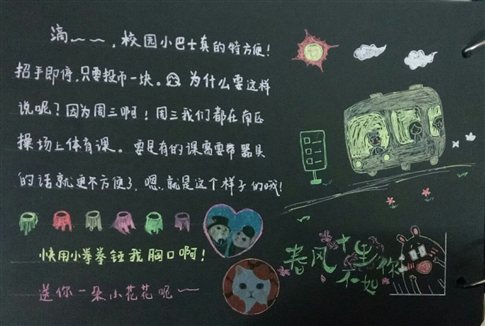 滴~~~,校园小巴士真的特方便!
招手即停,只要投币一块。为什么要这样
说呢?因为周三啊!周三我们都在南区
操场上体育课。要是有的课需要带器具
的话就更不方便了,嗯,就是这个样子的哦!
快用小拳拳锤我胸口啊!
送你一朵小花花呢~~
春风十里
不如你